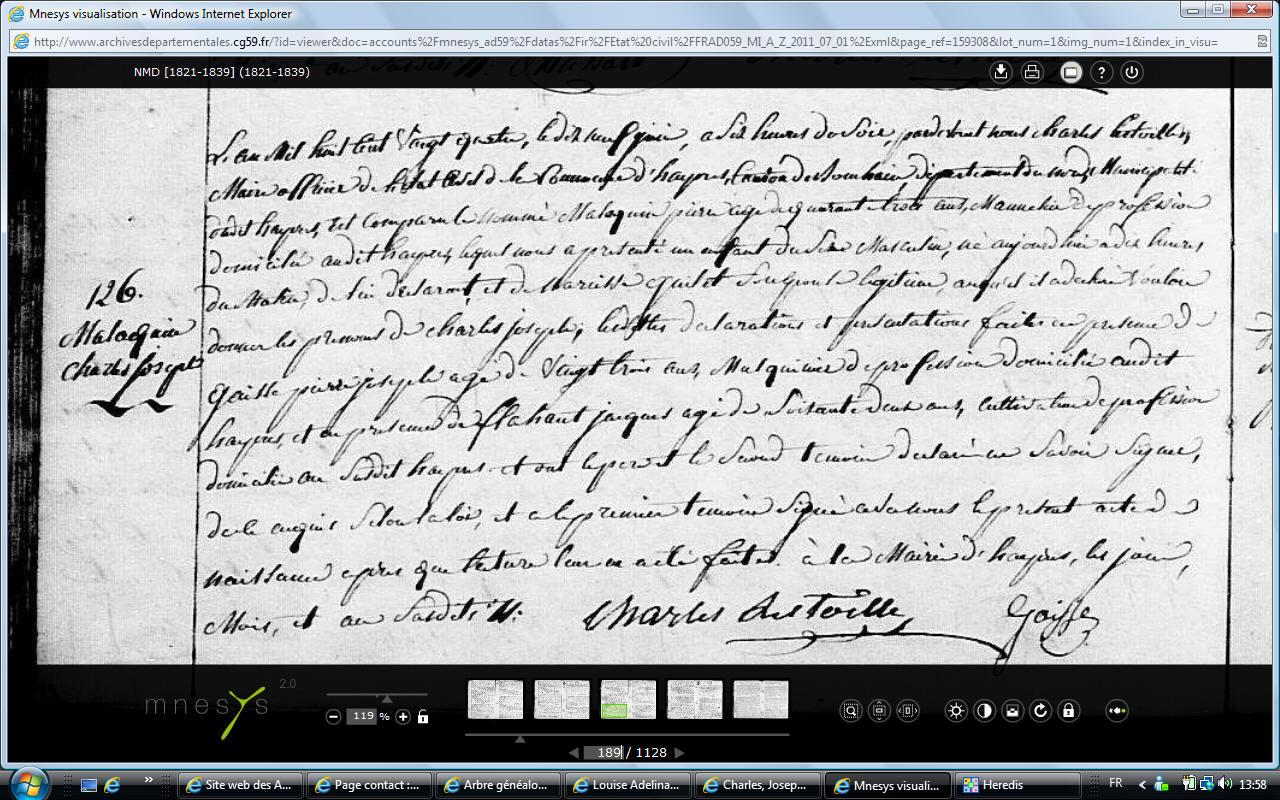 Mnesys visualisation - Windows Internet Explorer
http://www.archivesdepartementales.cg59.fr/?id=viewer&doc=accounts%2Fmnesys_ad59%2Fdatas%2Fir%2FEtat civil%2FFRAD059_MI_A_Z_2011_07_01%2Exml&page_ref=159308&lot_num=1&img_num=1&index_in_visu=
NMD [1821-1839] (1821-1839)
?
L'an Mil huit cent Vingt quatre, le dix neuf juin, a Six heures du Soir, pardevant nous charles
Maire officier de l'état Civil de la Commune d'haspres, Canton de Bouchain, département du nord,
dudit haspres, est comparu le nommé Malaquin pierre agé de quarante trois ans, de profession
domicilié audit haspres, lequel nous a présenté un enfant du Sexe Masculin, né aujourd'hui a dix heures
du Matin, de lui déclarant, et de Son épouse légitime, auquel il a déclaré Vouloir
donner les prénoms de charles joseph, lesdittes déclarations et présentations faites en présence de
126.
Malaquin
Charles Joseph
pierre joseph agé de Vingt trois ans, Mulquinier de profession domicilié audit
haspres, et en présence de flahaut jacques agé de Soixante deux ans, cultivateur de profession
domicilié au Susdit haspres et ont le pere et le Second témoin déclaré ne Savoir Signer,
de ce enquis Selon la loi, et a le premier témoin Signé avec nous le présent acte de
naissance apres que lecture leur en a été faite. à la Mairie d'haspres, les jour,
Mois, et an Susdits
Charles
mnesys 2.0
119 %
189 / 1128
Site web des A...
Page contact :...
Arbre généalo...
Louise Adelina...
Charles, Josep...
Mnesys visuali...
Heredis
FR
13:58